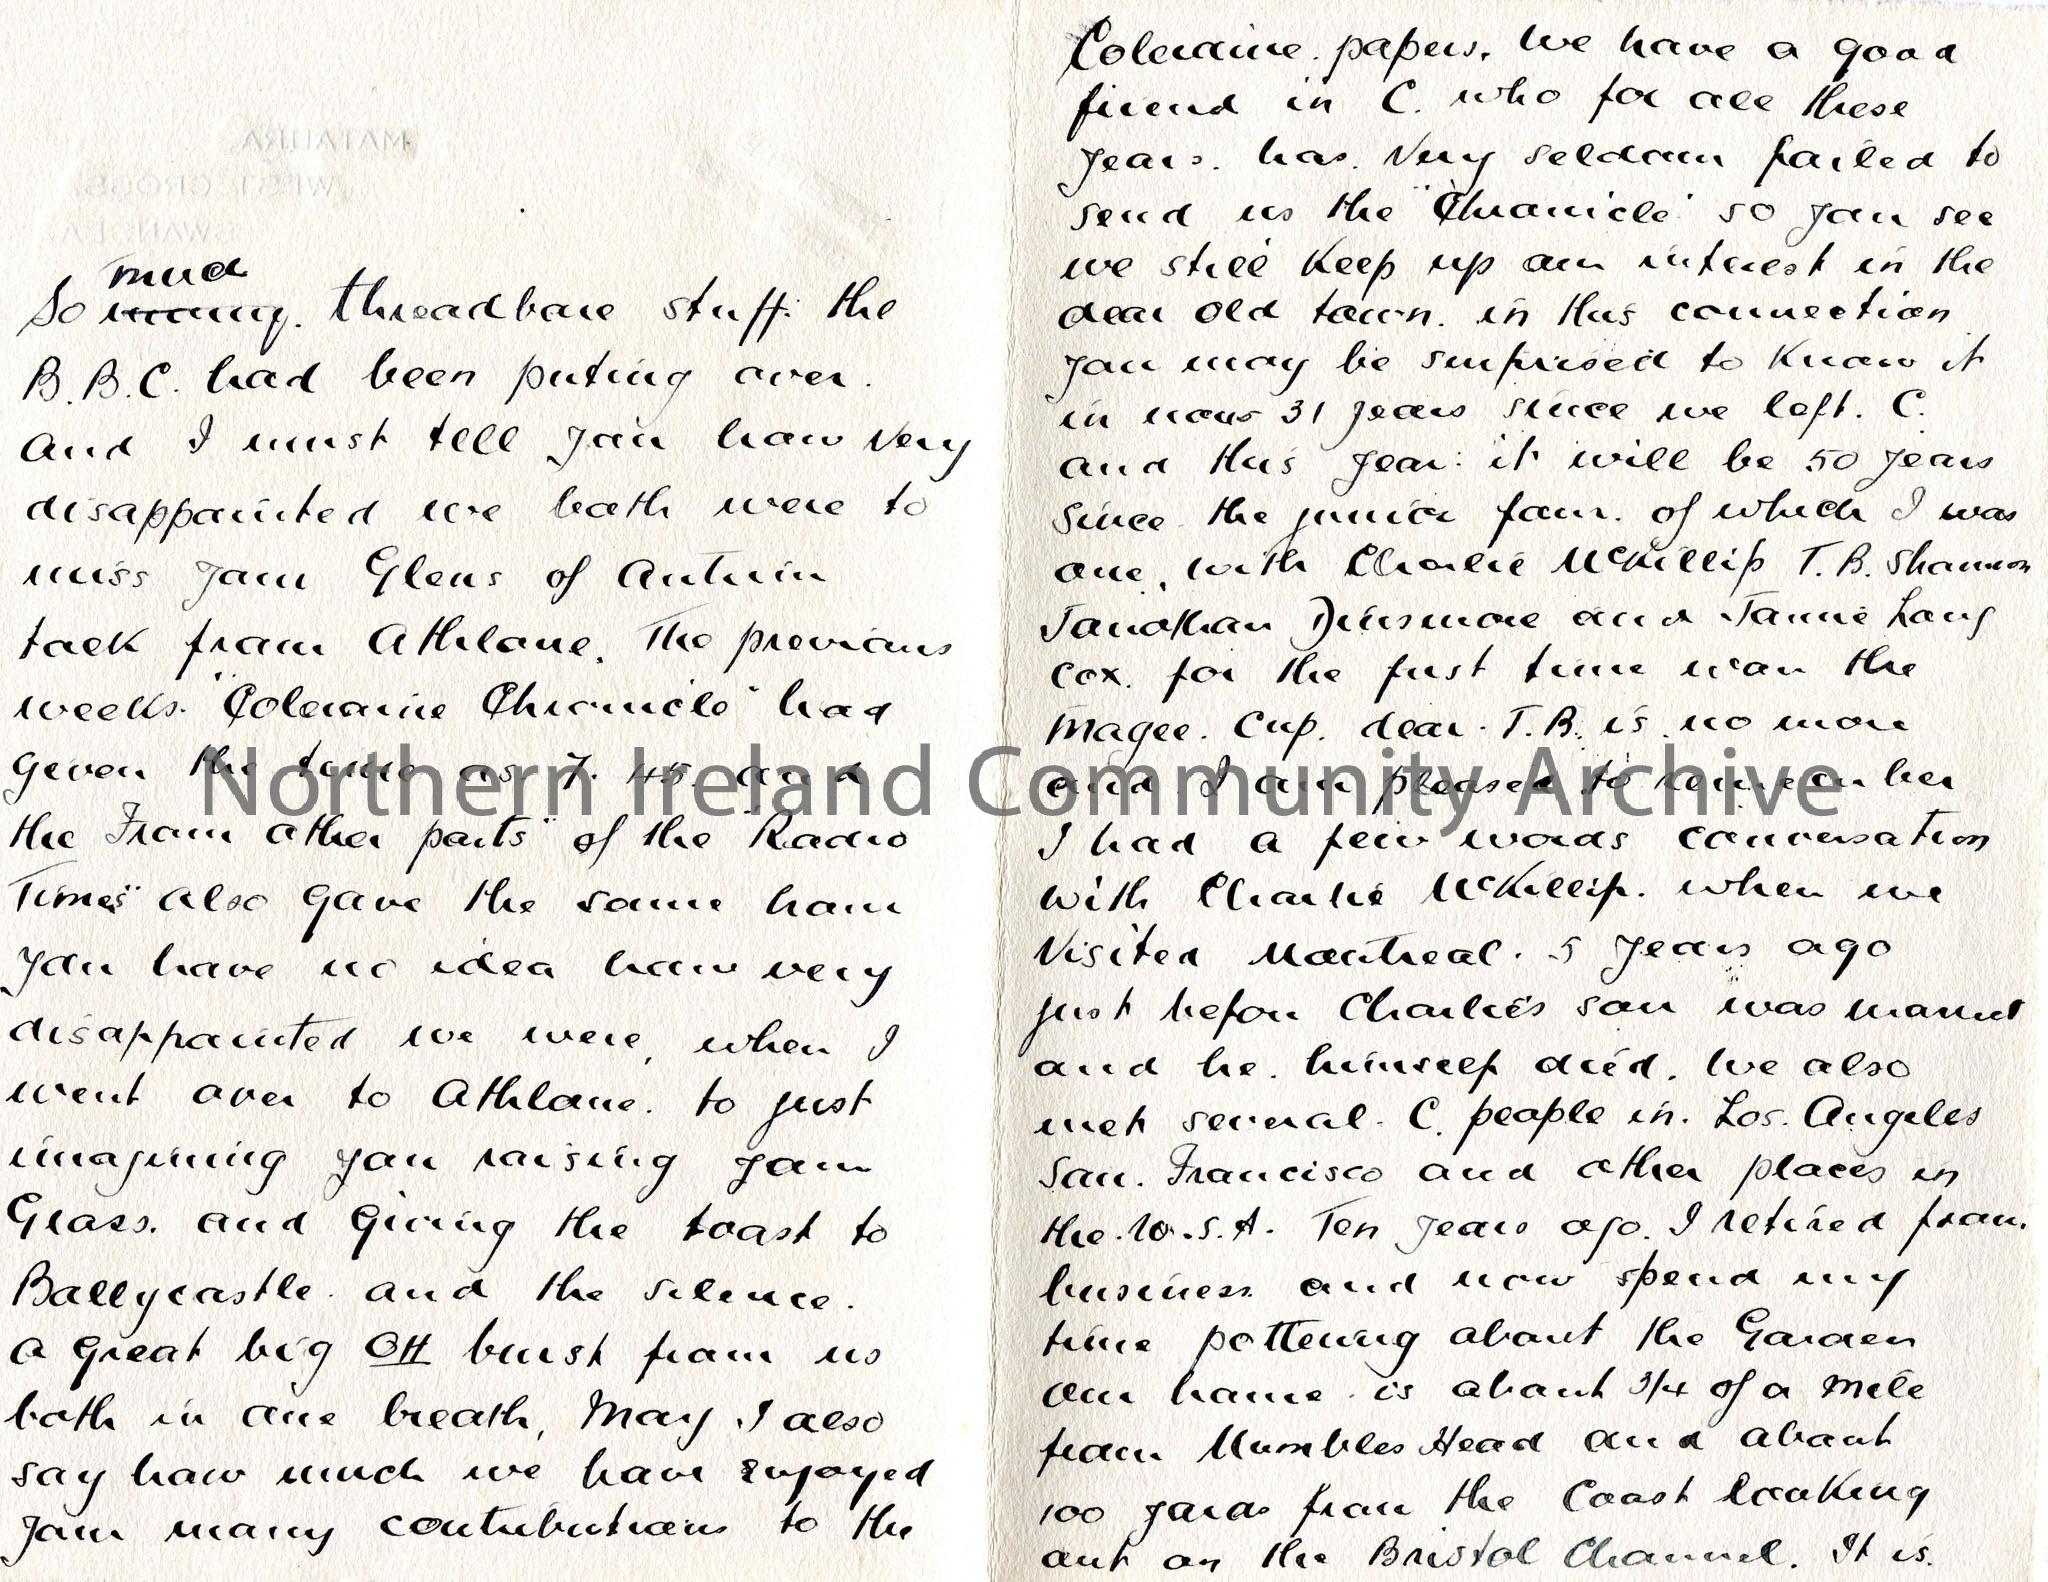 MATAURA,
WEST CROSS,
SWANSEA
much
So many. threadbare stuff. the
B.B.C. had been puting over.
and I must tell you how very
disappointed we both were to
miss your Glens of Antrim
talk from Athlone. The previous
weeks. "Coleraine Chronicle" had
given the time as 7.45. and
the "From other parts" of the "Radio
Times" also gave the same hour
you have no idea how very
disappointed we were, when I
went over to Athlone. to just
imagining you raising your
Glass. and giving the toast to
Ballycastle. and the silence.
a great big OH burst from us
both in one breath, May I also
say how much we have enjoyed
your many contributions to the
Coleraine. papers. We have a good
friend in C. who for all these
years. has. very seldom failed to
send us the "Chronicle" so you see
we still keep up an interest in the
dear old town. in this connection
you may be surprised to know it
in now 31 years since we left. C.
and this year: it will be 50 years
since the junior four. of which I was
one, with Charlie McKillip T.B. Shannon
Jonothan Dinsmore and Jamie Lang
cox. for the first time won the
Magee. Cup. dear. T.B. is no more
and I am pleased to remember
I had a few words conversation
with Charlie McKillip. when we
visited Montreal. 5 years ago
just before Charlie's son was married
and he. himself died. We also
met several. C. people in. Los. Angeles
San. Francisco and other places in
the U.S.A. Ten years ago. I retired from.
business and now spend my
time pottering about the Garden
our home. is about 3/4 of a mile
from Mumbles Head and about
100 yards from the Coast looking
out on the Bristol Channel. It is.
Northern Ireland Community Archive